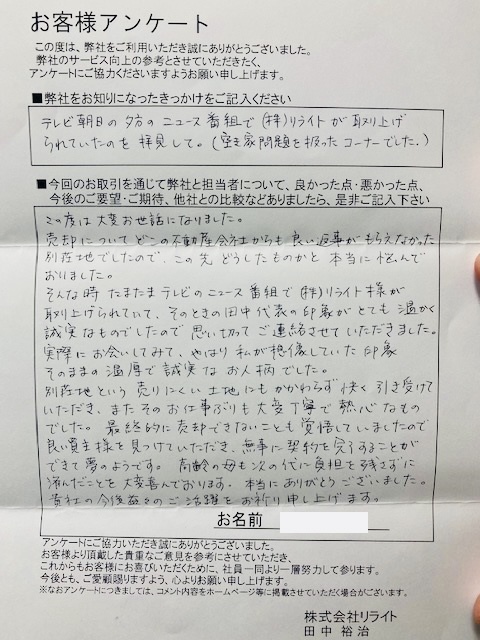 お客様アンケート
この度は、弊社をご利用いただき誠にありがとうございました。
弊社のサービス向上の参考とさせていただきたく、
アンケートにご協力くださいますようお願い申し上げます。
■弊社をお知りになったきっかけをご記入ください
テレビ朝日の夕方のニュース番組で(株)リライトが取り上げ
られていたのを拝見して。(空き家問題を扱ったコーナーでした。)
■今回のお取引を通じて弊社と担当者について、良かった点・悪かった点、
今後のご要望・ご期待、他社との比較などありましたら、是非ご記入下さい
この度は大変お世話になりました。
売却についてどこの不動産会社からも良い返事がもらえなかった
別荘地でしたので、この先どうしたものかと本当に悩んで
おりました。
そんな時たまたまテレビのニュース番組で(株)リライト様が
取り上げられていて、そのときの田中代表の印象がとても温かく
誠実なものでしたので思い切ってご連絡させていただきました。
実際にお会いしてみて、やはり私が想像していた印象
そのままの温厚で誠実なお人柄でした。
別荘地という売りにくい土地にもかかわらず快く引き受けて
いただき、またそのお仕事ぶりも大変丁寧で熱心なもの
でした。最終的に売却できないことも覚悟していましたので
良い買主様を見つけていただき、無事に契約を完了することが
できて夢のようです。高齢の母も次の代に負担を残さずに
済んだことを大変喜んでおります。本当にありがとうございました。
貴社の今後益々のご活躍をお祈り申し上げます。
お名前
アンケートにご協力いただき誠にありがとうございました。
お客様より頂戴した貴重なご意見を参考にさせていただき、
これからもお客様にお喜びいただくために、社員一同より一層努力して参ります。
今後とも、ご愛顧賜りますよう、心よりお願い申し上げます。
※なおアンケートにつきましては、コメント内容をホームページ等に掲載させていただく場合がございます。
株式会社リライト
田中 裕治